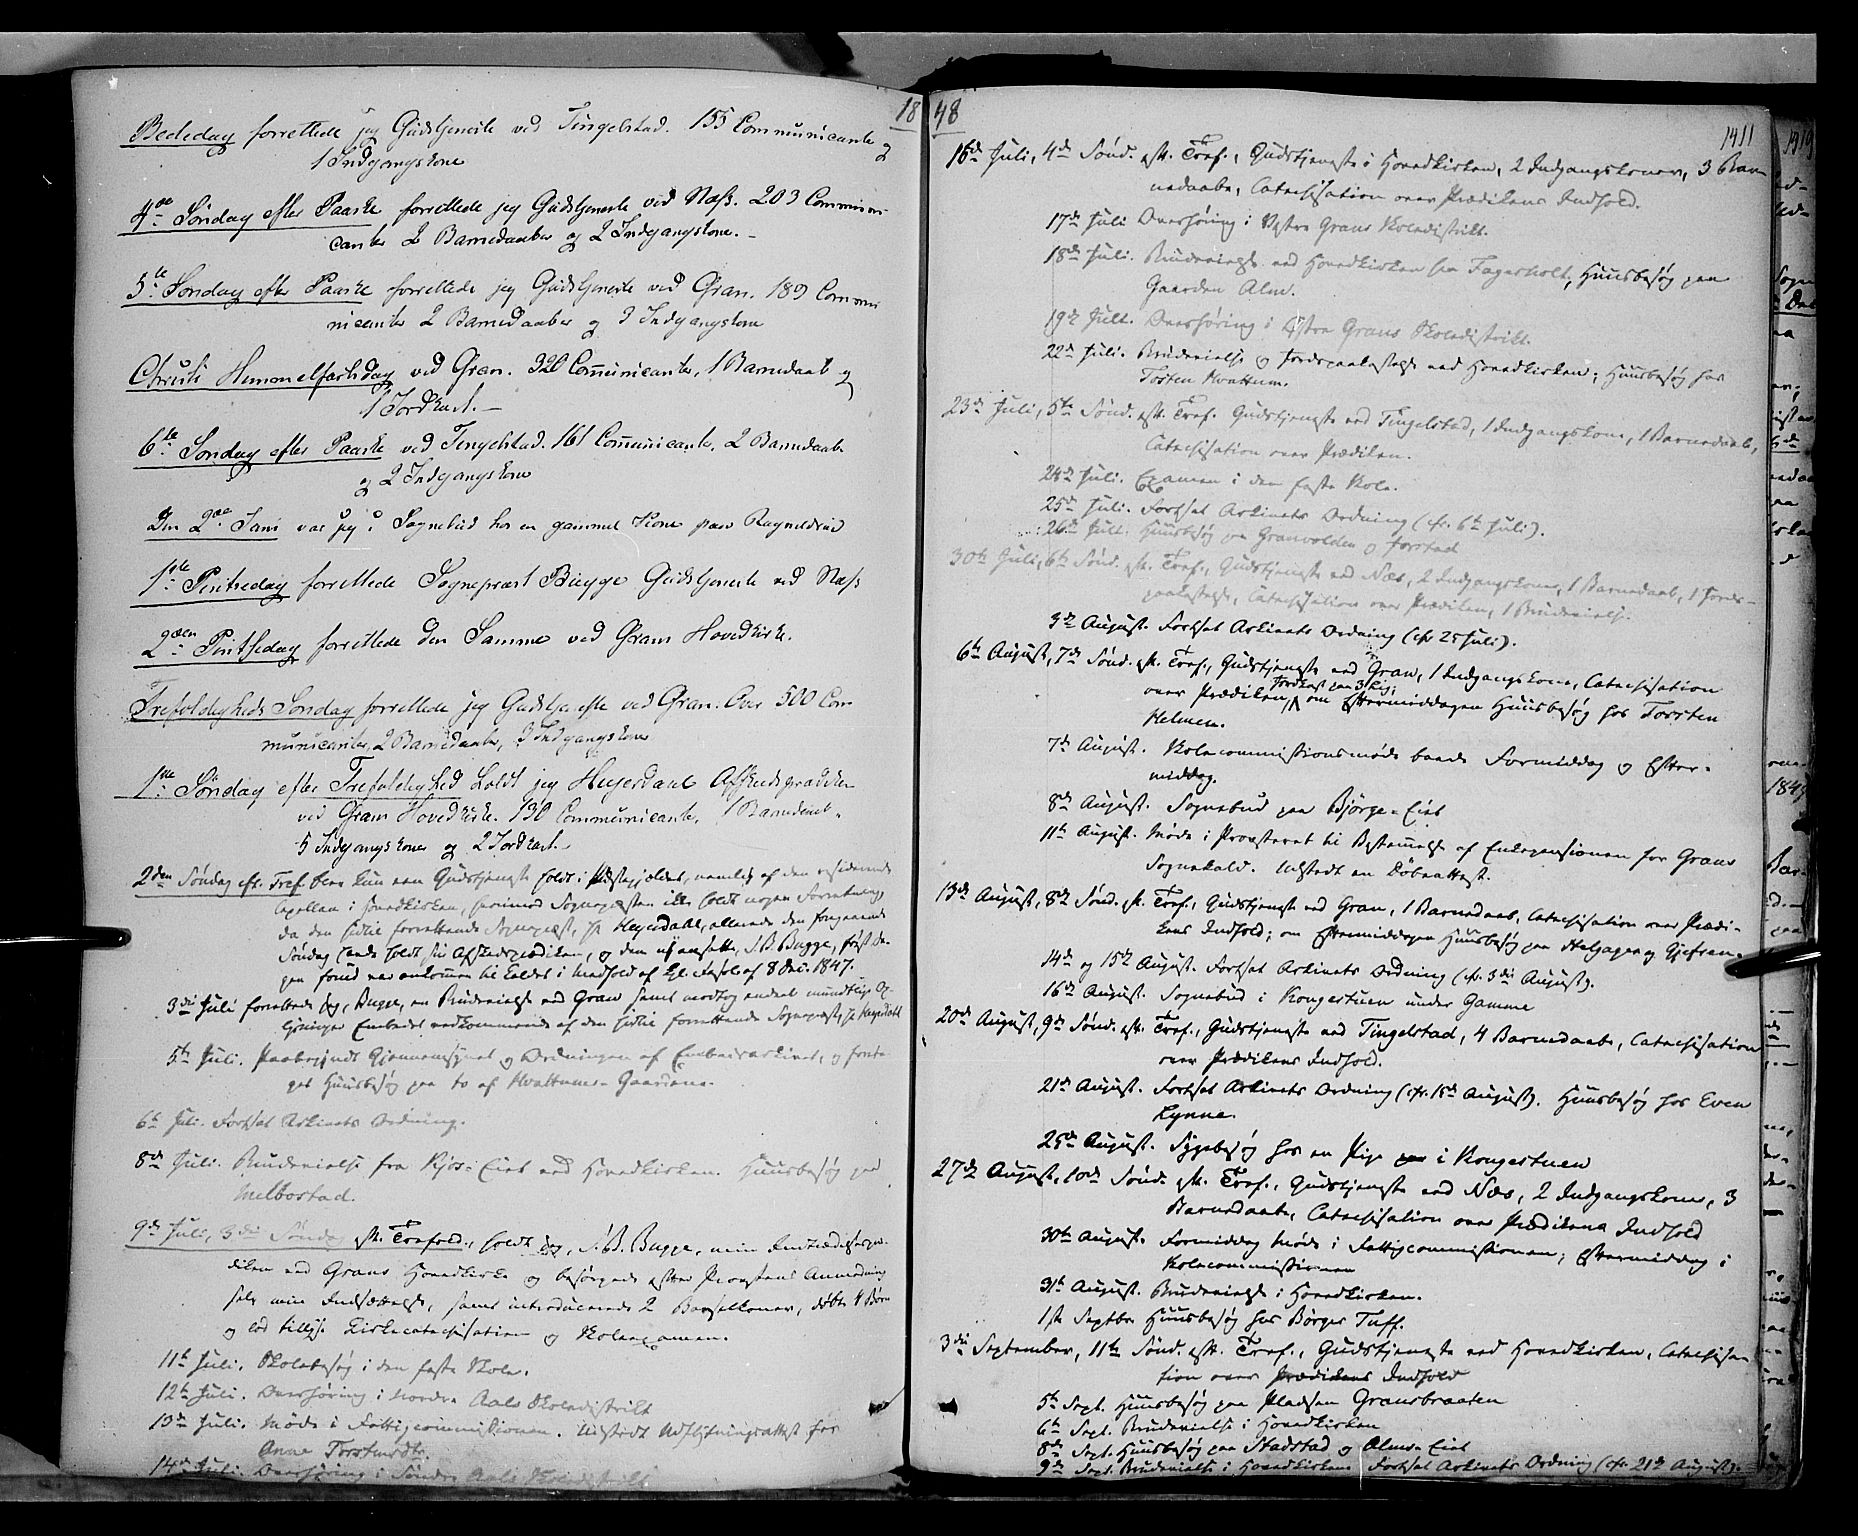 18
Bededag forrettede jeg Gudstjeneste ved Tingelstad. 155 Communicanter og
1 Indgangskone
4de Søndag efter Paaske forrettede jeg Gudstjeneste ved Næss. 203 Communi-
canter 2 Barnedaaber og 2 Indgangskone.-
5te Søndag efter Paaske forrettede jeg Gudstjeneste ved Gran. 189 Commu
nicanter 2 Barnedaaber og 3 Indgangskone
Christi Himmelfartsdag ved Gran. 320 Communicanter, 1 Barnedaab og
1 Jordkast.-
6te Søndag efter Paaske ved Tingelstad. 161 Communicanter, 2 Barnedaab
og 2 Indgangskone
Den 2den Juni var jeg i Sognebud hos en gammel Kone paa
1ste Pintsedag forrettede Sognepræst Bugge Gudstjeneste ved Næss
2den Pintsedag forrettede den Samme ved Grans Hovedkirke.
Trefoldigheds Søndag forrettede jeg Gudstjeneste ved Gran. Over 500 Com
municanter, 2 Barnedaaber, 3 Indgangskone
1ste Søndag efter Trefoldighed holdt jeg Heyerdahl Afskedsprædiken
ved Grans Hovedkirke. 130 Communicanter, 1 Barnedaab,
5 Indgangskoner og 2 Jordkast.-
2den Søndag eft. Tref. blev kun een Gudstjeneste holdt i Præstegjeldet, nemlig af den residerende
Capellan i Hovedkirken, hvorimod Sognepræsten ikke holdt nogen Forretning,
da den hidtil forrettende Sognepræst, Hr Heyerdahl, allerede den foregaaende
Søndag havde holdt sin Afskedsprædiken, og den nyansatte, S. B. Bugge, først Da-
gen forud var ankommen til Kaldet i Medhold af Kgl. Resol. af 8 Dec. 1847.
3die Juli forrettede jeg, Bugge, en Brudevielse ved Gran samt modtog endeel mundtlige Op-
lysninger Embedet vedkommende af den hidtil forrettende Sognepræst, Hr Heyerdahl
5te Juli. Paabegyndt Gjennemsynet og Ordningen af Embedsarkivet, og foreta-
get Huusbesøg paa to af Hvattums-Gaardene.
6te Juli. Fortsat Arkivets Ordning.
8de Juli. Brudevielse fra Kjos-Eiet ved Hovedkirken. Huusbesøg paa
Melbostad.
9de Juli, 3die Søndag eft. Trefold., holdt jeg, S. B. Bugge, min Indtrædelsespræ-
diken ved Grans Hovedkirke og besørgede efter Provstens Anmodning
selv min Indsættelse, samt introducerede 2 Barselkoner, døbte 4 Børn
og lod tillyse Kirkecatechisation og Skoleexamen.
11te Juli. Skolebesøg i den faste Skole.
12te Juli. Overhøring i Nordre Aals Skoledistrikt
13de Juli. Møde i Fattigcommissionen. Udstedt Udflytningsattest for
Anne Torstensdtr.
14de Juli. Overhøring i Søndre Aals Skoledistrikt.
48
1411
16de Juli, 4de Sønd. eft. Tref., Gudstjeneste i Hovedkirken, 2 Indgangskoner, 3 Bar-
nedaabe, Catechisation over Prædikens Indhold.
17de Juli Overhøring i Vestre Grans Skoledistrikt.
18de Juli. Brudevielse ved Hovedkirken fra Fagerholt, Huusbesøg paa
Gaarden Alm.
19de Juli. Overhøring i Østre Grans Skoledistrikt.
22de Juli. Brudevielse og Jordspaakastelse ved Hovedkirken; Huusbesøg hos
Torsten Hvattum.
23de Juli, 5te Sønd. eft. Tref. Gudstjeneste ved Tingelstad, 1 Indgangskone, 1 Barnedaab,
Catechisation over Prædiken.
24de Juli. Examen i den faste Skole.
25de Juli. Fortsat Arkivets Ordning (cfr. 6te Juli).
26de Juli. Huusbesøg paa Granvolden og Jorstad
30te Juli, 6te Sønd. eft. Tref., Gudstjeneste ved Næs, 2 Indgangskoner, 1 Barnedaab, 1 Jords-
paakastelse, Catechisation over Prædiken, 1 Brudevielse.
3die August. Fortsat Arkivets Ordning (cfr 25 Juli).
6te August, 7de Sønd. eft. Tref., Gudstjeneste ved Gran, 1 Indgangskone, Catechisation
Jordkast paa 3 Lig;
over Prædiken, om Eftermiddagen Huusbesøg hos Torsten
Helmen.
7de August. Skolecommissionsmøde baade Formiddag og Efter-
middag.
8de August. Sognebud paa Bjørge-Eiet
11te August. Møde i Provsteret til Bestemmelse af Enkepensionen for Grans
Sognekald. Udstedt en Døbeattest.
13de August, 8de Sønd. eft. Tref., Gudstjeneste ved Gran, 1 Barnedaab, Catechisation over Prædi-
kens Indhold; om Eftermiddagen Huusbesøg paa Helgager og Gjefsen.
14de og 15de August. Fortsat Arkivets Ordning (cfr. 3die August).
16de August. Sognebud i Kongestuen under Gamme
20de August, 9de Sønd. eft. Tref., Gudstjeneste ved Tingelstad, 4 Barnedaabe, Catechisation
over Prædikens Indhold.
21de August. Fortsat Arkivets Ordning (cfr. 15de August). Huusbesøg hos Even
Lynne.
25de August. Sygebesøg hos en Pige i Kongestuen
27de August, 10de Sønd. eft. Tref., Gudstjeneste ved Næs, 2 Indgangskone, 3
Barnedaabe, Catechisation over Prædikens Indhold
30te August. Formiddag Møde i Fattigcommissionen; Eftermiddag i
Skolecommissionen
31te August. Brudevielse i Hovedkirken.
1ste Septbr. Huusbesøg hos Børger Tuff.
3die September, 11te Sønd. eft. Tref., Gudstjeneste ved Hovedkirken, Catechisa-
tion over Prædikens Indhold
5te Sept. Huusbesøg paa Pladsen Gransbraaten
6te Sept. Brudevielse i Hovedkirken
8de Sept. Huusbesøg paa Stadstad og Alms-Eiet
9de Sept. Brudevielse i Hovedkirken. Fortsat Arkivets Ordning (cfr. 21de August).